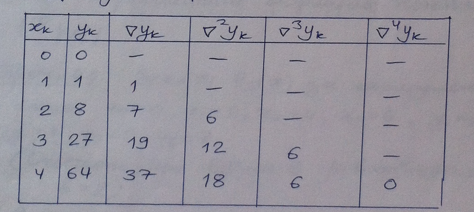 xₖ yₖ ∇yₖ ∇²yₖ ∇³yₖ ∇⁴yₖ
0 0 — — — —
1 1 1 — — —
2 8 7 6 — —
3 27 19 12 6 —
4 64 37 18 6 0